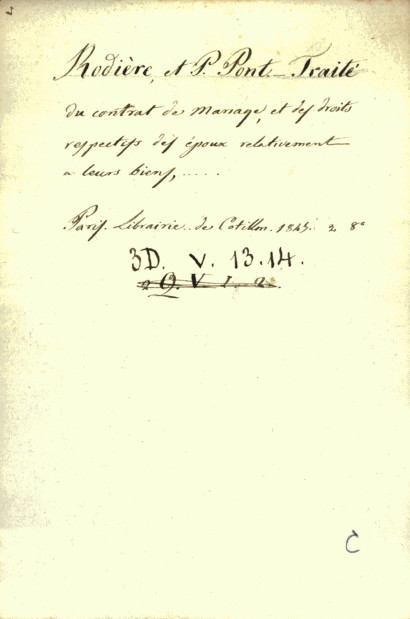 Rodière, et P. Pont - Traité
du contrat de mariage, et des droits
respectifs des époux relativement
a leurs biens, .....
Paris. Librairie. de Cotillon. 1845. 2 8º
3D. V. 13.14.
2 Q. V 1. 2.
C